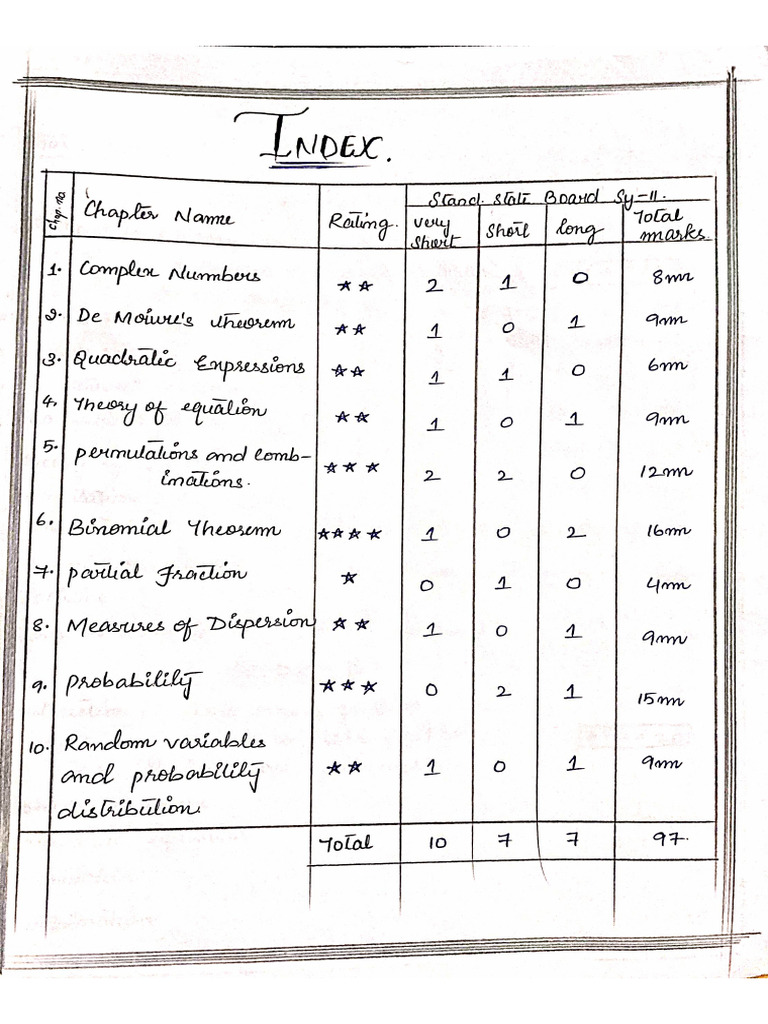 INDEX.
Chap. No Chapter Name Rating. Stand. State Board Sy-II.
very short short long Total marks.
1. Complex Numbers ★★ 2 1 0 8m
2. De Moivre's theorem ★★ 1 0 1 9m
3. Quadratic Expressions ★★ 1 1 0 6m
4. Theory of equation ★★ 1 0 1 9m
5. permutations and comb-
inations. ★★★ 2 2 0 12m
6. Binomial Theorem ★★★★ 1 0 2 16m
7. partial Fraction ★ 0 1 0 4m
8. Measures of Dispersion ★★ 1 0 1 9m
9. probability ★★★ 0 2 1 15m
10. Random variables
and probability ★★ 1 0 1 9m
distribution.
Total 10 7 7 97.